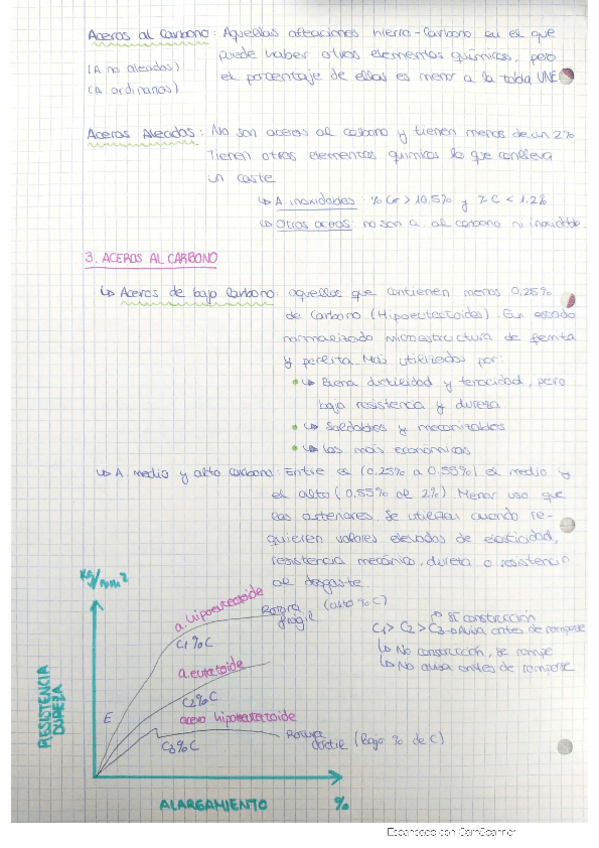 Aceros al Carbono: Aquellas aleaciones hierro-Carbono en el que
puede haber otros elementos químicos, pero
(A no aleados)
el porcentaje de ellos es menor a la tabla UNE
(A ordinarios)
Aceros Aleados: No son aceros al carbono y tienen menos de un 2%
Tienen otros elementos químicos lo que conlleva
un coste
↳ A. inoxidables: % Cr > 10.5% y % C < 1.2%
↳ Otros aceros: no son a. al carbono ni inoxidable.
3. ACEROS AL CARBONO
↳ Aceros de bajo Carbono: aquellos que contienen menos 0,25%
de Carbono (Hipoeutectoides). En estado
normalizado microestructura de ferrita
y perlita. Más utilizados por:
• ↳ Buena ductilidad y tenacidad, pero
baja resistencia y dureza
• ↳ Soldables y mecanizables
• ↳ Los más económicos
↳ A. medio y alto carbono: Entre el (0,25% a 0.55%) el medio y
el alto (0.55% al 2%) Menor uso que
los anteriores. Se utilizan cuando re-
quieren valores elevados de elasticidad,
resistencia mecánica, dureza o resistencia
al desgaste.
Kg/mm²
a. hipereutectoide
Rotura frágil (alto % C)
C1 % C
a. eutectoide
C2 % C
acero hipoeutectoide
E
C3 % C
Rotura dúctil (Bajo % de C)
RESISTENCIA
DUREZA
ALARGAMIENTO %
SI construcción
C1 > C2 > C3 → avisa antes de romperse
↳ No construcción, se rompe
↳ No avisa antes de romperse
Escaneado con CamScanner